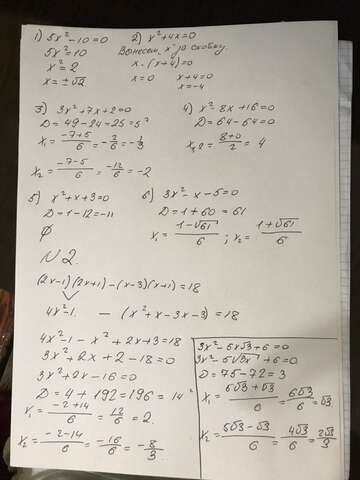 1) 5x²-10=0
5x²=10
x²=2
x=±√2
2) x²+4x=0
Вынесем "x" за скобку.
x·(x+4)=0
x=0 x+4=0
x=-4
3) 3x²+7x+2=0
D=49-24=25=5²
x₁=(-7+5)/6=-2/6=-1/3
x₂=(-7-5)/6=-12/6=-2
4) x²-8x+16=0
D=64-64=0
x₁,₂=(8±0)/2=4
5) x²+x+3=0
D=1-12=-11
∅
6) 3x²-x-5=0
D=1+60=61
x₁=(1-√61)/6; x₂=(1+√61)/6
N2.
(2x-1)(2x+1)-(x-3)(x+1)=18
4x²-1 -(x²+x-3x-3)=18
4x²-1-x²+2x+3=18
3x²+2x+2-18=0
3x²+2x-16=0
D=4+192=196=14²
x₁=(-2+14)/6=12/6=2.
x₂=(-2-14)/6=-16/6=-8/3
3x²-5x√3+6=0
3x²-5√3x+6=0
D=75-72=3
x₁=(5√3+√3)/6=6√3/6=√3.
x₂=(5√3-√3)/6=4√3/6=2√3/3